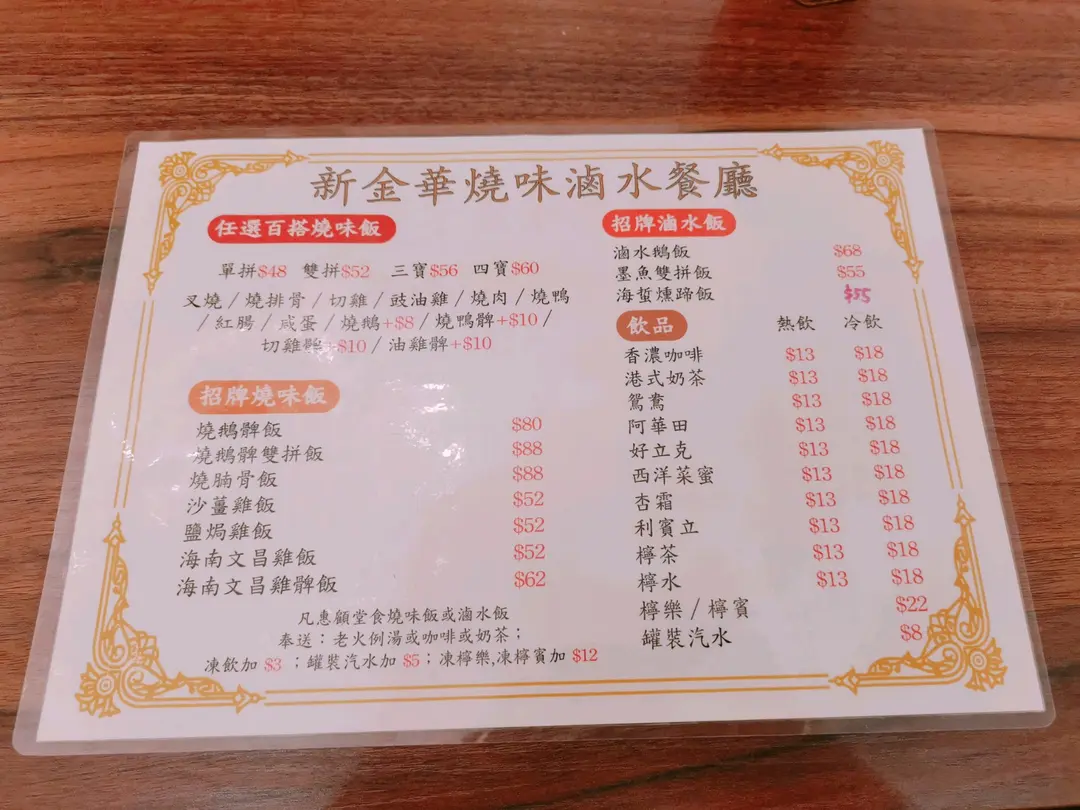 新金華燒味滷水餐廳
任選百搭燒味飯
單拼$48 雙拼$52 三寶$56 四寶$60
叉燒/燒排骨/切雞/豉油雞/燒肉/燒鴨
/紅腸/咸蛋/燒鵝+$8/燒鴨髀+$10/
切雞髀+$10/油雞髀+$10
招牌燒味飯
燒鵝髀飯 $80
燒鵝髀雙拼飯 $88
燒腩骨飯 $88
沙薑雞飯 $52
鹽焗雞飯 $52
海南文昌雞飯 $52
海南文昌雞髀飯 $62
凡惠顧堂食燒味飯或滷水飯
奉送：老火例湯或咖啡或奶茶；
凍飲加 $3 ；罐裝汽水加 $5；凍檸樂,凍檸賓加 $12
招牌滷水飯
滷水鵝飯 $68
墨魚雙拼飯 $55
海蜇燻蹄飯 $55
飲品 熱飲 冷飲
香濃咖啡 $13 $18
港式奶茶 $13 $18
鴛鴦 $13 $18
阿華田 $13 $18
好立克 $13 $18
西洋菜蜜 $13 $18
杏霜 $13 $18
利賓立 $13 $18
檸茶 $13 $18
檸水 $13 $18
檸樂/檸賓 $22
罐裝汽水 $8